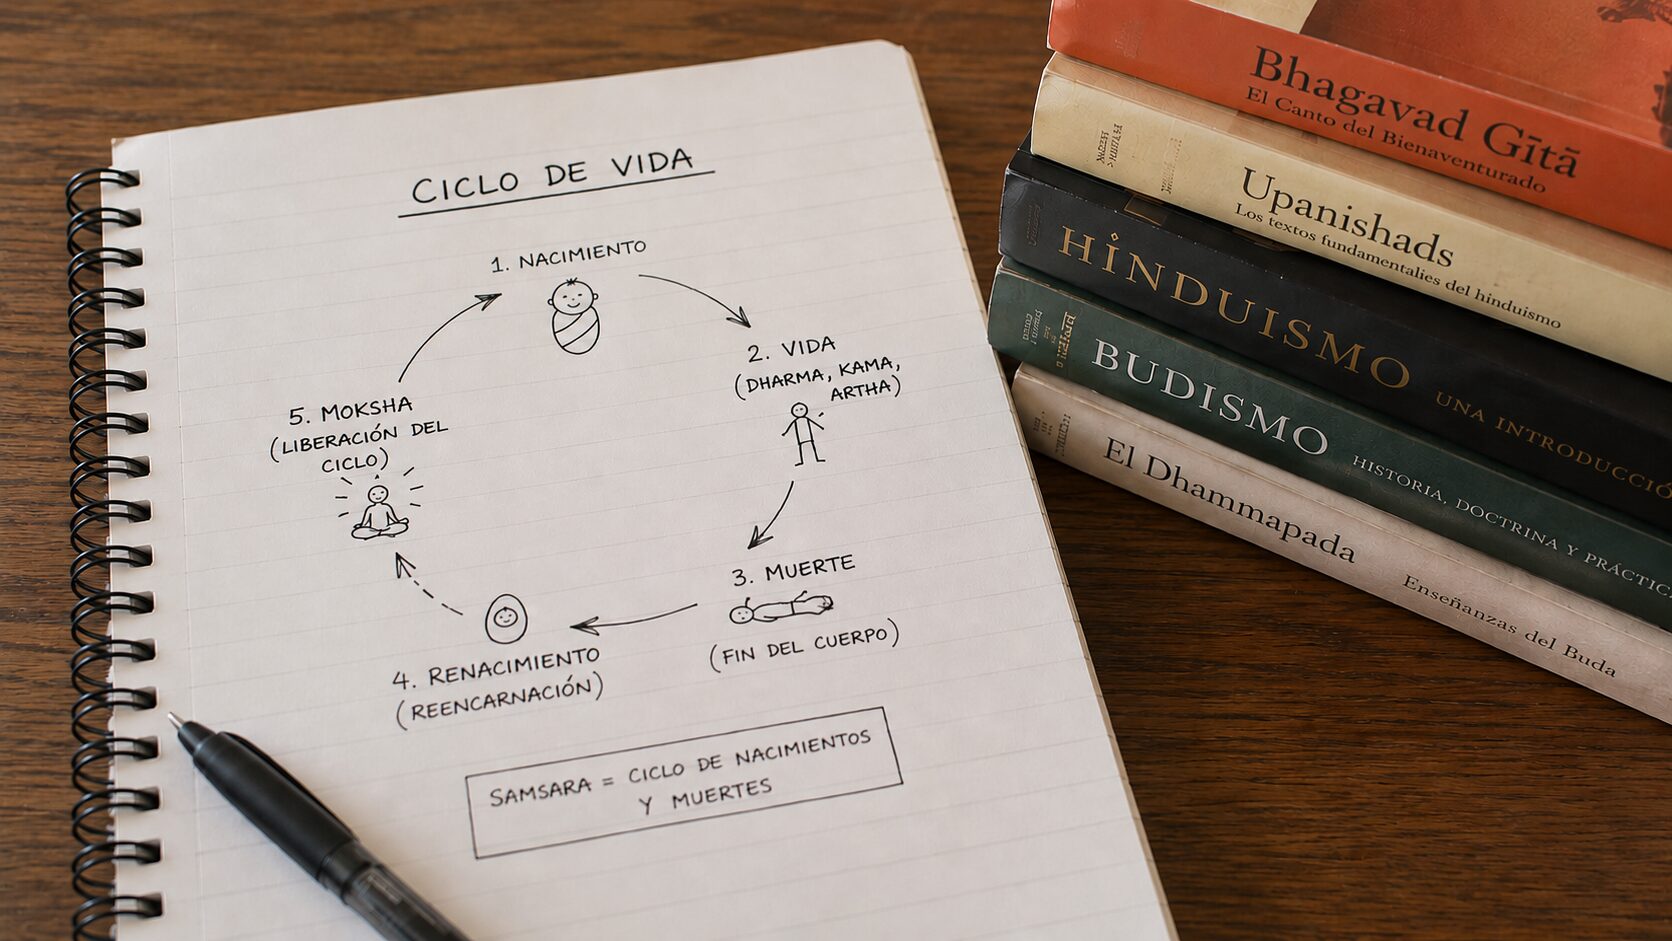 CICLO DE VIDA
1. NACIMIENTO
2. VIDA
(DHARMA, KAMA,
ARTHA)
3. MUERTE
(FIN DEL CUERPO)
4. RENACIMIENTO
(REENCARNACIÓN)
5. MOKSHA
(LIBERACIÓN DEL
CICLO)
SAMSARA = CICLO DE NACIMIENTOS
Y MUERTES
Bhagavad Gītā
El Canto del Bienaventurado
Upanishads
Los textos fundamentalies del hinduismo
HINDUISMO UNA INTRODUCCIÓ
BUDISMO HISTORIA, DOCTRINA Y PRÁCTICA
El Dhammapada Enseñanzas del Buda